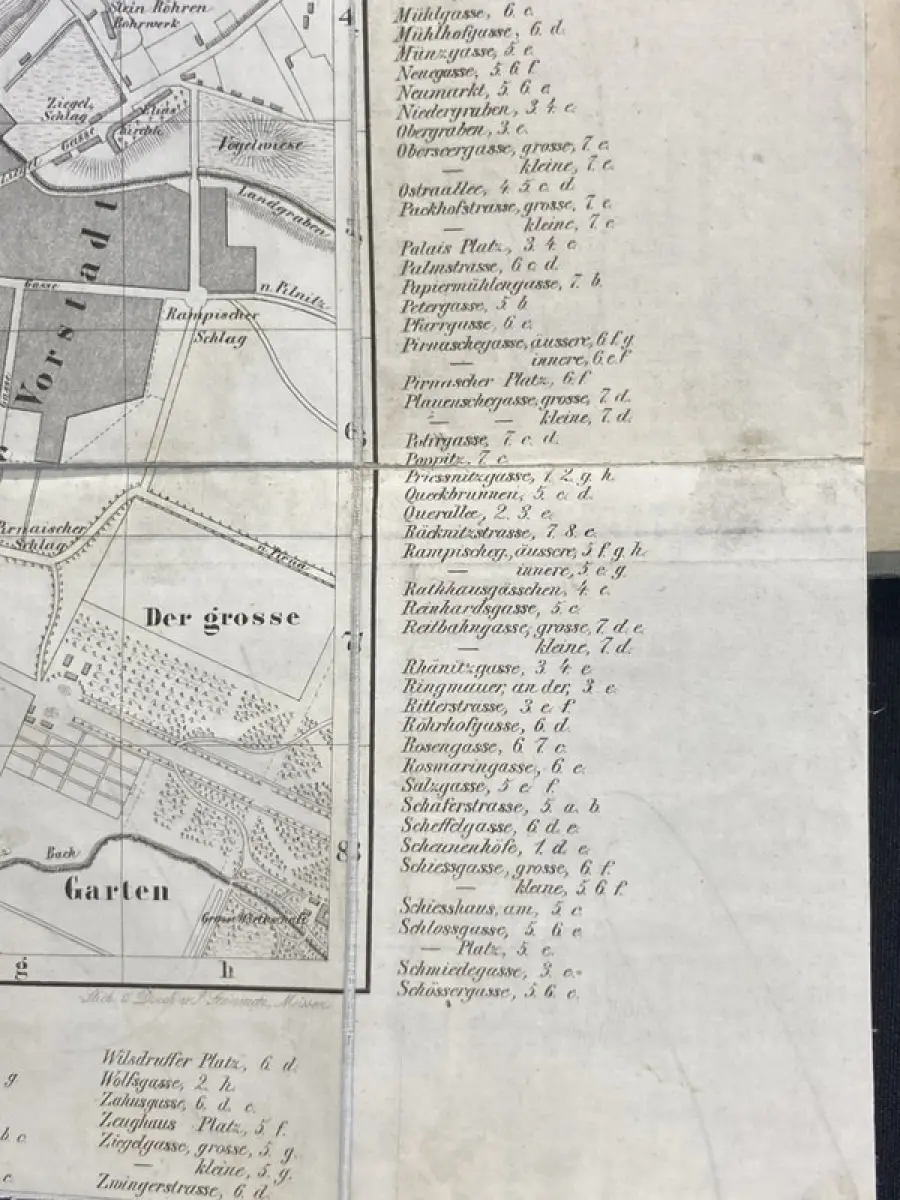 Stein Röhren
Bohrwerk
4
Ziegel
Schlag
Elias
Kirchh.
Vogelwiese
Ziegel Gasse
Landgraben
5
Vorstadt
Gasse
n. Pilnitz
Rampischer
Schlag
6
Pirnaischer
Schlag
n. Pirna
Der grosse
7
8
Bach
Garten
Grosse Wirthschaft
g
h
Mühlgasse, 6. e.
Mühlhofgasse, 6. d.
Münzgasse, 5. e.
Neuegasse, 5. 6. f.
Neumarkt, 5. 6. e.
Niedergraben, 3. 4. e.
Obergraben, 3. e.
Oberseergasse, grosse, 7. e.
— kleine, 7. e.
Ostraallee, 4. 5. c. d.
Packhofstrasse, grosse, 7. c.
— kleine, 7. c.
Palais Platz, 3. 4. e.
Palmstrasse, 6 c. d.
Papiermühlengasse, 7. b.
Petergasse, 5. b.
Pfarrgasse, 6. e.
Pirnaschegasse, äussere, 6. f. g.
— innere, 6. e. f.
Pirnascher Platz, 6. f.
Plauenschegasse, grosse, 7. d.
— — kleine, 7. d.
Polirgasse, 7. c. d.
Poppitz, 7. c.
Priessnitzgasse, 1. 2. g. h.
Queckbrunnen, 5. c. d.
Querallee, 2. 3. e.
Räcknitzstrasse, 7. 8. e.
Rampischeg., äussere, 5. f. g. h.
— innere, 5. e. g.
Rathhausgässchen, 4. e.
Reinhardsgasse, 5. c.
Reitbahngasse, grosse, 7. d. e.
— kleine, 7. d.
Rhänitzgasse, 3. 4. e.
Ringmauer, an der, 3. e.
Ritterstrasse, 3. e. f.
Röhrhofgasse, 6. d.
Rosengasse, 6. 7. c.
Rosmaringasse, 6. e.
Salzgasse, 5. e. f.
Schäferstrasse, 5. a. b.
Scheffelgasse, 6 d. e.
Scheunenhöfe, 1. d. e.
Schiessgasse, grosse, 6. f.
— kleine, 5. 6. f.
Schiesshaus, am, 5. c.
Schlossgasse, 5. 6 e.
— Platz, 5. e.
Schmiedegasse, 3. e.
Schössergasse, 5. 6. e.
g.
b c.
c.
Wilsdruffer Platz, 6. d.
Wolfsgasse, 2. h.
Zahnsgasse, 6. d. e.
Zeughaus Platz, 5. f.
Ziegelgasse, grosse, 5. g.
— kleine, 5. g.
Zwingerstrasse, 6. d.